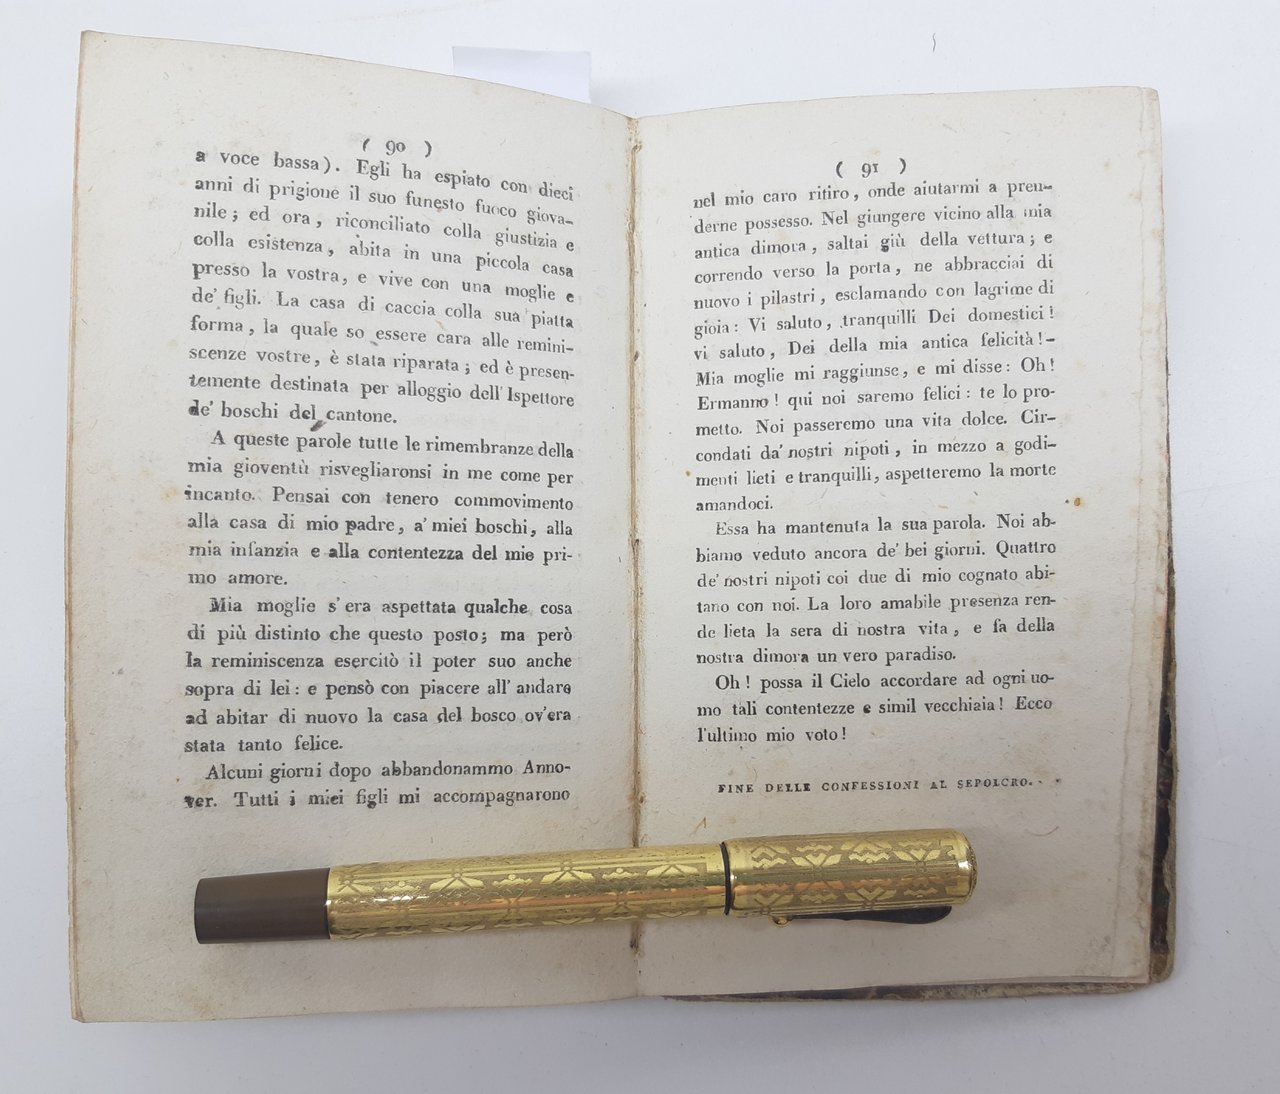 ( 90 )
a voce bassa). Egli ha espiato con dieci
anni di prigione il suo funesto fuoco giova-
nile; ed ora, riconciliato colla giustizia e
colla esistenza, abita in una piccola casa
presso la vostra, e vive con una moglie e
de' figli. La casa di caccia colla sua piatta
forma, la quale so essere cara alle remini-
scenze vostre, è stata riparata; ed è presen-
temente destinata per alloggio dell'Ispettore
de' boschi del cantone.
A queste parole tutte le rimembranze della
mia gioventù risvegliaronsi in me come per
incanto. Pensai con tenero commovimento
alla casa di mio padre, a' miei boschi, alla
mia infanzia e alla contentezza del mio pri-
mo amore.
Mia moglie s'era aspettata qualche cosa
di più distinto che questo posto; ma però
la reminiscenza esercitò il poter suo anche
sopra di lei: e pensò con piacere all'andare
ad abitar di nuovo la casa del bosco ov'era
stata tanto felice.
Alcuni giorni dopo abbandonammo Anno-
ver. Tutti i miei figli mi accompagnarono
( 91 )
nel mio caro ritiro, onde aiutarmi a pren-
derne possesso. Nel giungere vicino alla mia
antica dimora, saltai giù della vettura; e
correndo verso la porta, ne abbracciai di
nuovo i pilastri, esclamando con lagrime di
gioia: Vi saluto, tranquilli Dei domestici!
vi saluto, Dei della mia antica felicità!-
Mia moglie mi raggiunse, e mi disse: Oh!
Ermanno! qui noi saremo felici: te lo pro-
metto. Noi passeremo una vita dolce. Cir-
condati da' nostri nipoti, in mezzo a godi-
menti lieti e tranquilli, aspetteremo la morte
amandoci.
Essa ha mantenuta la sua parola. Noi ab-
biamo veduto ancora de' bei giorni. Quattro
de' nostri nipoti coi due di mio cognato abi-
tano con noi. La loro amabile presenza ren-
de lieta la sera di nostra vita, e fa della
nostra dimora un vero paradiso.
Oh! possa il Cielo accordare ad ogni uo-
mo tali contentezze e simil vecchiaia! Ecco
l'ultimo mio voto!
FINE DELLE CONFESSIONI AL SEPOLCRO.